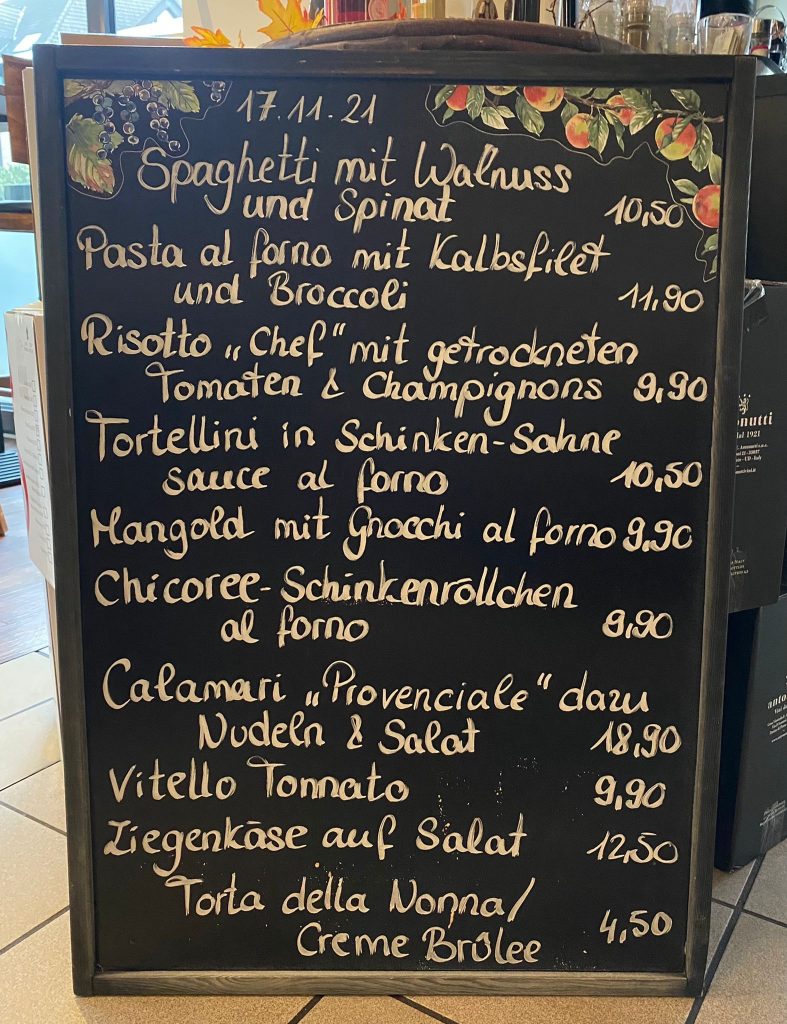 17.11.21
Spaghetti mit Walnuss
und Spinat 10,50
Pasta al forno mit Kalbsfilet
und Broccoli 11,90
Risotto „Chef“ mit getrockneten
Tomaten & Champignons 9,90
Tortellini in Schinken-Sahne
sauce al forno 10,50
Mangold mit Gnocchi al forno 9,90
Chicoree-Schinkenröllchen
al forno 9,90
Calamari „Provenciale“ dazu
Nudeln & Salat 18,90
Vitello Tonnato 9,90
Ziegenkäse auf Salat 12,50
Torta della Nonna/
Creme Brûlee 4,50
dal 1921